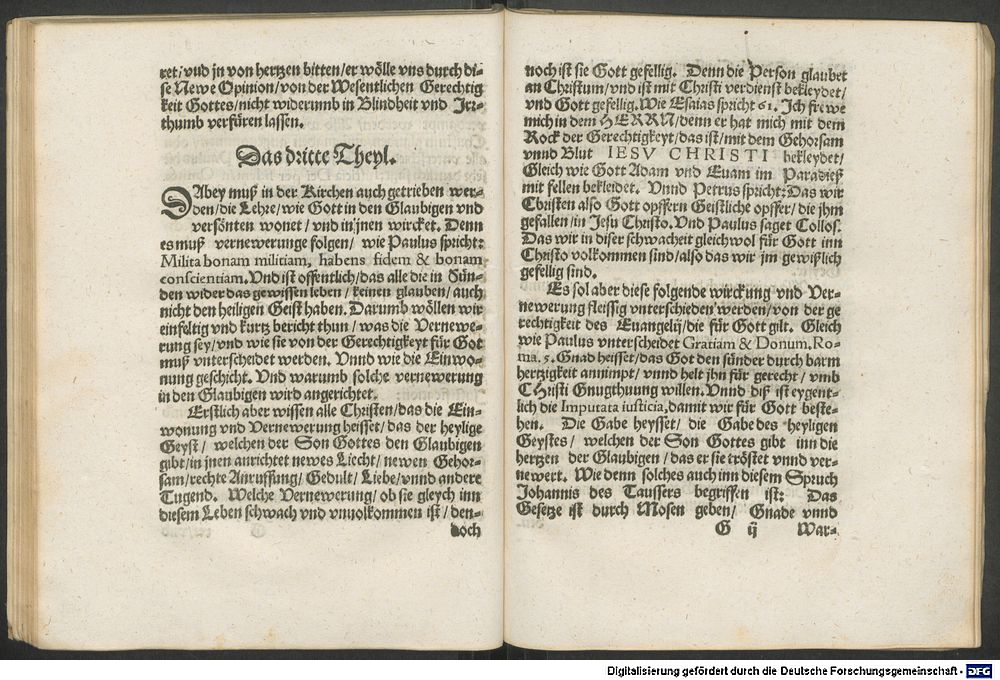 ret/vnd jn von hertzen bitten/er wölle vns durch di-
se Newe Opinion/von der Wesentlichen Gerechtig
keit Gottes/nicht widerumb in Blindheit vnd Irr-
thumb verfüren lassen.
Das dritte Theyl.
DAbey muß in der Kirchen auch getrieben wer-
den/die Lehre/wie Gott in den Glaubigen vnd
versönten wonet/vnd in jnen wircket. Denn
es muß vernewerunge folgen/ wie Paulus spricht:
Milita bonam militiam, habens fidem & bonam
conscientiam. Vnd ist offentlich/das alle die in Sün-
den wider das gewissen leben/ keinen glauben/ auch
nicht den heiligen Geist haben. Darumb wöllen wir
einfeltig vnd kurtz bericht thun/ was die Vernewe-
rung sey/vnd wie sie von der Gerechtigkeyt für Got
muß vnterscheidet werden. Vnnd wie die Einwo-
nung geschicht. Vnd warumb solche vernewerung
in den Glaubigen wird angerichtet.
Erstlich aber wissen alle Christen/das die Ein-
wonung vnd Vernewerung heisset/das der heylige
Geyst/ welchen der Son Gottes den Glaubigen
gibt/in jnen anrichtet newes Liecht/newen Gehor-
sam/rechte Anruffung/Gedult/Liebe/vnnd andere
Tugend. Welche Vernewerung/ob sie gleych inn
diesem Leben schwach vnd vnuolkommen ist/den-
noch
noch ist sie Gott gefellig. Denn die Person glaubet
an Christum/vnd ist mit Christi verdienst bekleydet/
vnd Gott gefellig. Wie Esaias spricht 61. Ich frewe
mich in dem HERRN/denn er hat mich mit dem
Rock der Gerechtigkeyt/das ist/mit dem Gehorsam
vnnd Blut IESV CHRISTI bekleydet/
Gleich wie Gott Adam vnd Euam im Paradieß
mit fellen bekleidet. Vnnd Petrus spricht: Das wir
Christen also Gott opffern Geistliche opffer/die jhm
gefallen/in Jesu Christo. Vnd Paulus saget Collos.
Das wir in diser schwacheit gleichwol für Gott inn
Christo volkommen sind/also das wir jm gewißlich
gefellig sind.
Es sol aber diese folgende wirckung vnd Ver-
newerung fleissig vnterschieden werden/von der ge
rechtigkeit des Euangelij/die für Gott gilt. Gleich
wie Paulus vnterscheidet Gratiam & Donum. Ro-
ma. 5. Gnad heisset/das Got den sünder durch barm
hertzigkeit annimpt/ vnnd helt jhn für gerecht/ vmb
CHristi Gnugthuung willen. Vnnd diß ist eygent-
lich die Imputata iusticia, damit wir für Gott beste-
hen. Die Gabe heysset/ die Gabe des heyligen
Geystes/ welchen der Son Gottes gibt inn die
hertzen der Glaubigen/das er sie tröstet vnnd ver-
newert. Wie denn solches auch inn diesem Spruch
Johannis des Taussers begriffen ist: Das
Gesetze ist durch Mosen geben/ Gnade vnnd
G ij War-
Digitalisierung gefördert durch die Deutsche Forschungsgemeinschaft - DFG